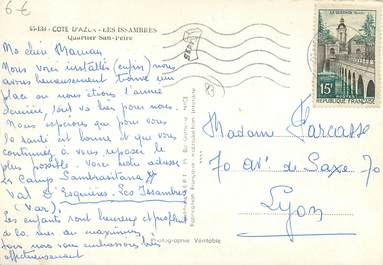 6€
45-134 - COTE D'AZUR - LES ISSAMBRES
Quartier San-Peire
Ma chère Maman
Nous voici installés (enfin) nous
avons heureusement trouvé une
place où nous étions l'année
dernière, tout va bien pour nous.
Nous espérons que pour vous
la santé est bonne et que vous
continuez à vous reposer le
plus possible. Voici notre adresse
Le Camp
Val d'Esquières. Les Issambres
(Var).
Les enfants sont heureux et profitent
de la mer au maximum
tous nous vous embrassons très
affectueusement
Photographie Véritable
LE QUESNOY
15F
POSTES
REPUBLIQUE FRANÇAISE
Madame Parcasse
70 av. de Saxe 70
Lyon